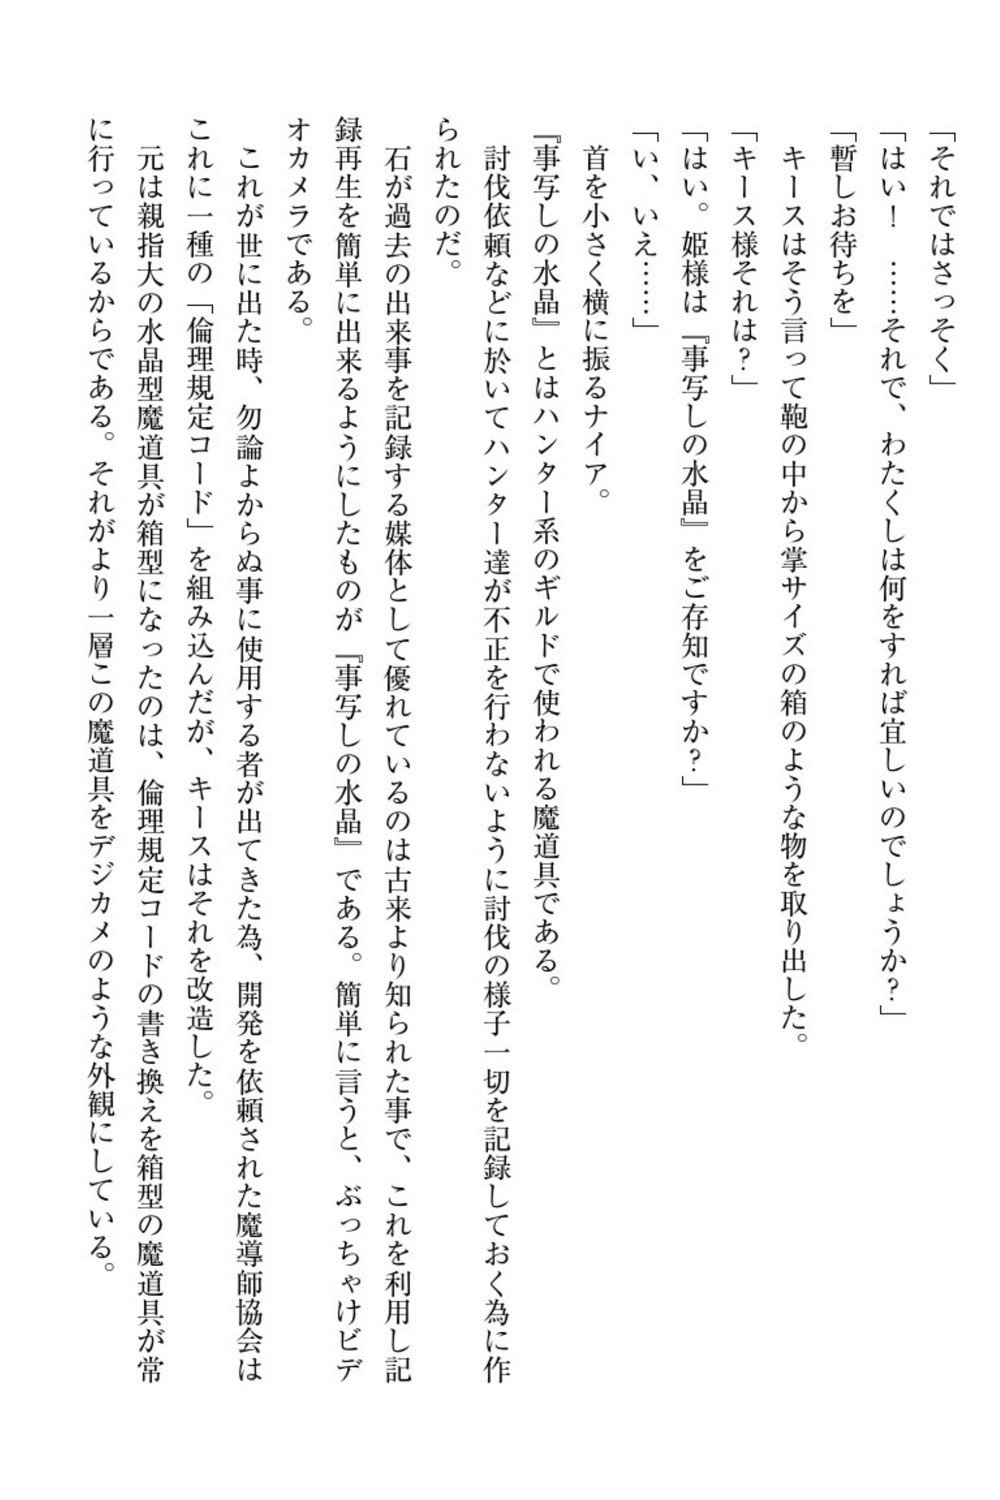 「それではさっそく」
「はい！　……それで、わたくしは何をすれば宜しいのでしょうか？」
「暫しお待ちを」
　キースはそう言って鞄の中から掌サイズの箱のような物を取り出した。
「キース様それは？」
「はい。姫様は『事写しの水晶』をご存知ですか？」
「い、いえ……」
　首を小さく横に振るナイア。
『事写しの水晶』とはハンター系のギルドで使われる魔道具である。
　討伐依頼などに於いてハンター達が不正を行わないように討伐の様子一切を記録しておく為に作
られたのだ。
　石が過去の出来事を記録する媒体として優れているのは古来より知られた事で、これを利用し記
録再生を簡単に出来るようにしたものが『事写しの水晶』である。簡単に言うと、ぶっちゃけビデ
オカメラである。
　これが世に出た時、勿論よからぬ事に使用する者が出てきた為、開発を依頼された魔導師協会は
これに一種の「倫理規定コード」を組み込んだが、キースはそれを改造した。
　元は親指大の水晶型魔道具が箱型になったのは、倫理規定コードの書き換えを箱型の魔道具が常
に行っているからである。それがより一層この魔道具をデジカメのような外観にしている。